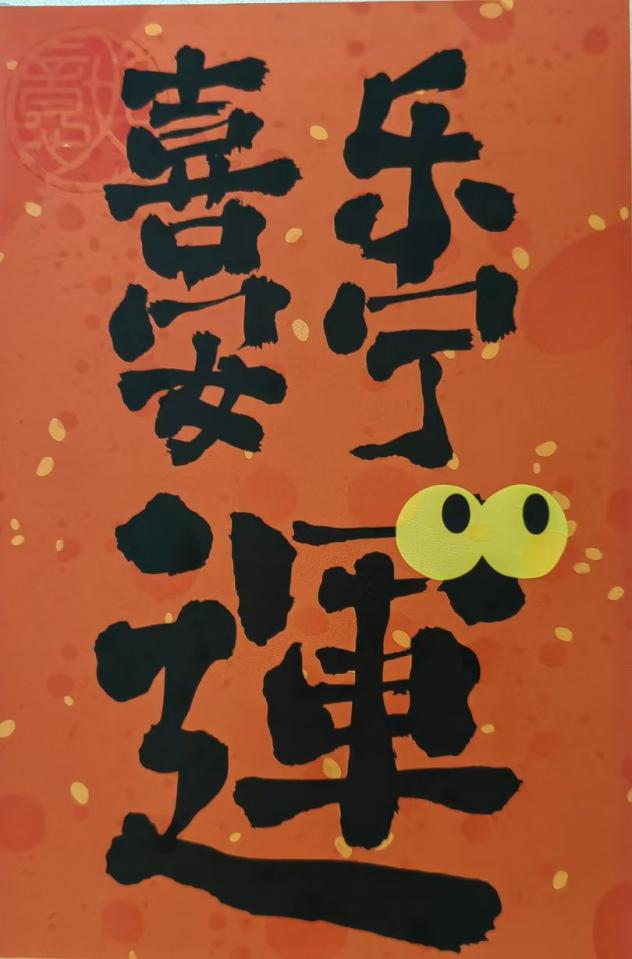 喜乐
安宁
運